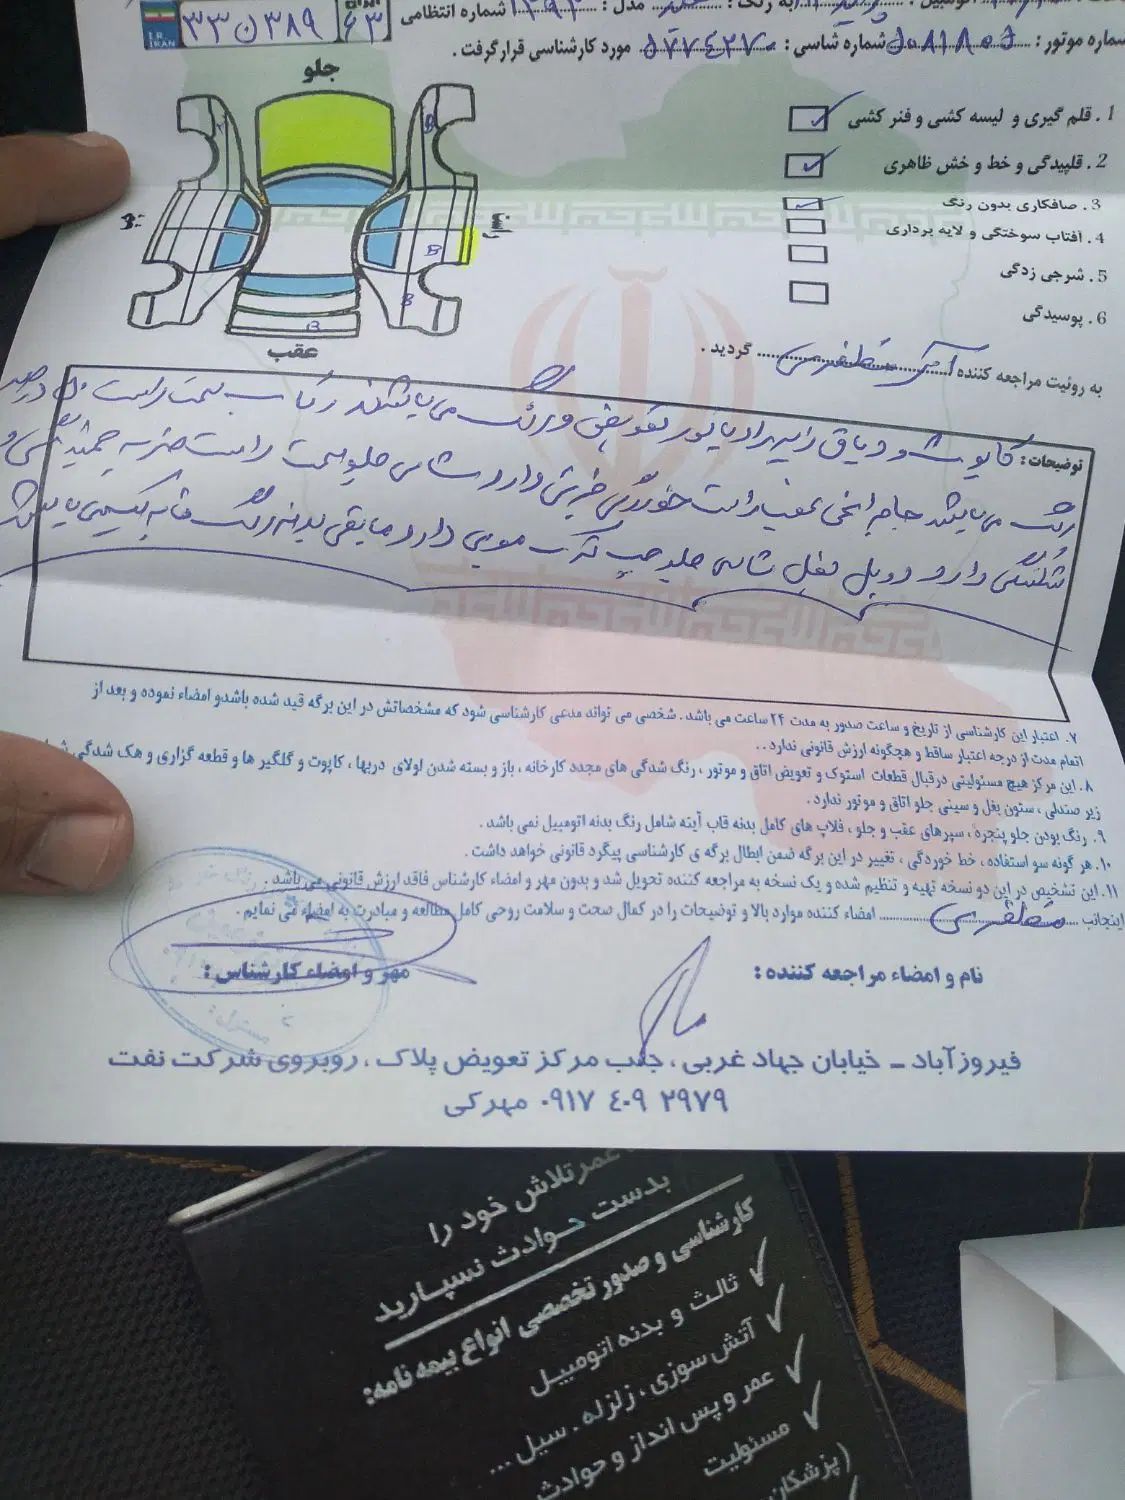 I.R. IRAN
۳۳ ن ۳۸۹
ایران ۶۳
به رنگ : مدل : ۱۳۹۲ شماره انتظامی
شماره موتور : شماره شاسی : مورد کارشناسی قرار گرفت .
جلو
1 . قلم گیری و لیسه کشی و فنر کشی
2 . قلپیدگی و خط و خش ظاهری
3 . صافکاری بدون رنگ
4 . آفتاب سوختگی و لایه برداری
5 . شرجی زدگی
6 . پوسیدگی
B
B
B
B
عقب
به روئیت مراجعه کننده مظفری گردید .
توضیحات : کاپوت و دیاق رادیاتور تعویض و رنگ می باشد رکاب سمت راست درصد
رنگ می باشد جام عقب راست خوردگی دارد شاسی جلو سمت راست ضربه جمشدگی و
شکستگی دارد شاسی جلو چپ ترک مویی دارد مابقی بدنه رنگ فابریک می باشد
۷. اعتبار این کارشناسی از تاریخ و ساعت صدور به مدت ۲۴ ساعت می باشد . شخصی می تواند مدعی کارشناسی شود که مشخصاتش در این برگه قید شده باشدو امضاء نموده و بعد از
اتمام مدت از درجه اعتبار ساقط و هیچگونه ارزش قانونی ندارد . .
۸. این مرکز هیچ مسئولیتی درقبال قطعات استوک و تعویض اتاق و موتور ، رنگ شدگی های مجدد کارخانه ، باز و بسته شدن لولای دربها ، کاپوت و گلگیر ها و قطعه گزاری و هک شدگی
زیر صندلی ، ستون بغل و سینی جلو اتاق و موتور ندارد .
۹. رنگ بودن جلو پنجره ، سپرهای عقب و جلو ، فلاپ های کامل بدنه قاب آینه شامل رنگ بدنه اتومبیل نمی باشد .
۱۰. هر گونه سو استفاده ، خط خوردگی ، تغییر در این برگه ضمن ابطال برگه ی کارشناسی پیگرد قانونی خواهد داشت .
۱۱. این تشخیص در این دو نسخه تهیه و تنظیم شده و یک نسخه به مراجعه کننده تحویل شد و بدون مهر و امضاء کارشناس فاقد ارزش قانونی می باشد .
اینجانب مظفری امضاء کننده موارد بالا و توضیحات را در کمال صحت و سلامت روحی کامل مطالعه و مبادرت به امضاء می نمایم .
نام و امضاء مراجعه کننده : مهر و امضاء کارشناس :
فیروزآباد - خیابان جهاد غربی ، جنب مرکز تعویض پلاک ، روبروی شرکت نفت
۰۹۱۷ ۴۰۹ ۲۹۷۹ مهرکی
عمر تلاش خود را
بدست حوادث نسپارید
کارشناسی و صدور تخصصی انواع بیمه نامه:
ثالث و بدنه اتومبیل
آتش سوزی ، زلزله ، سیل ...
عمر و پس انداز و حوادث
مسئولیت
(پزشکان